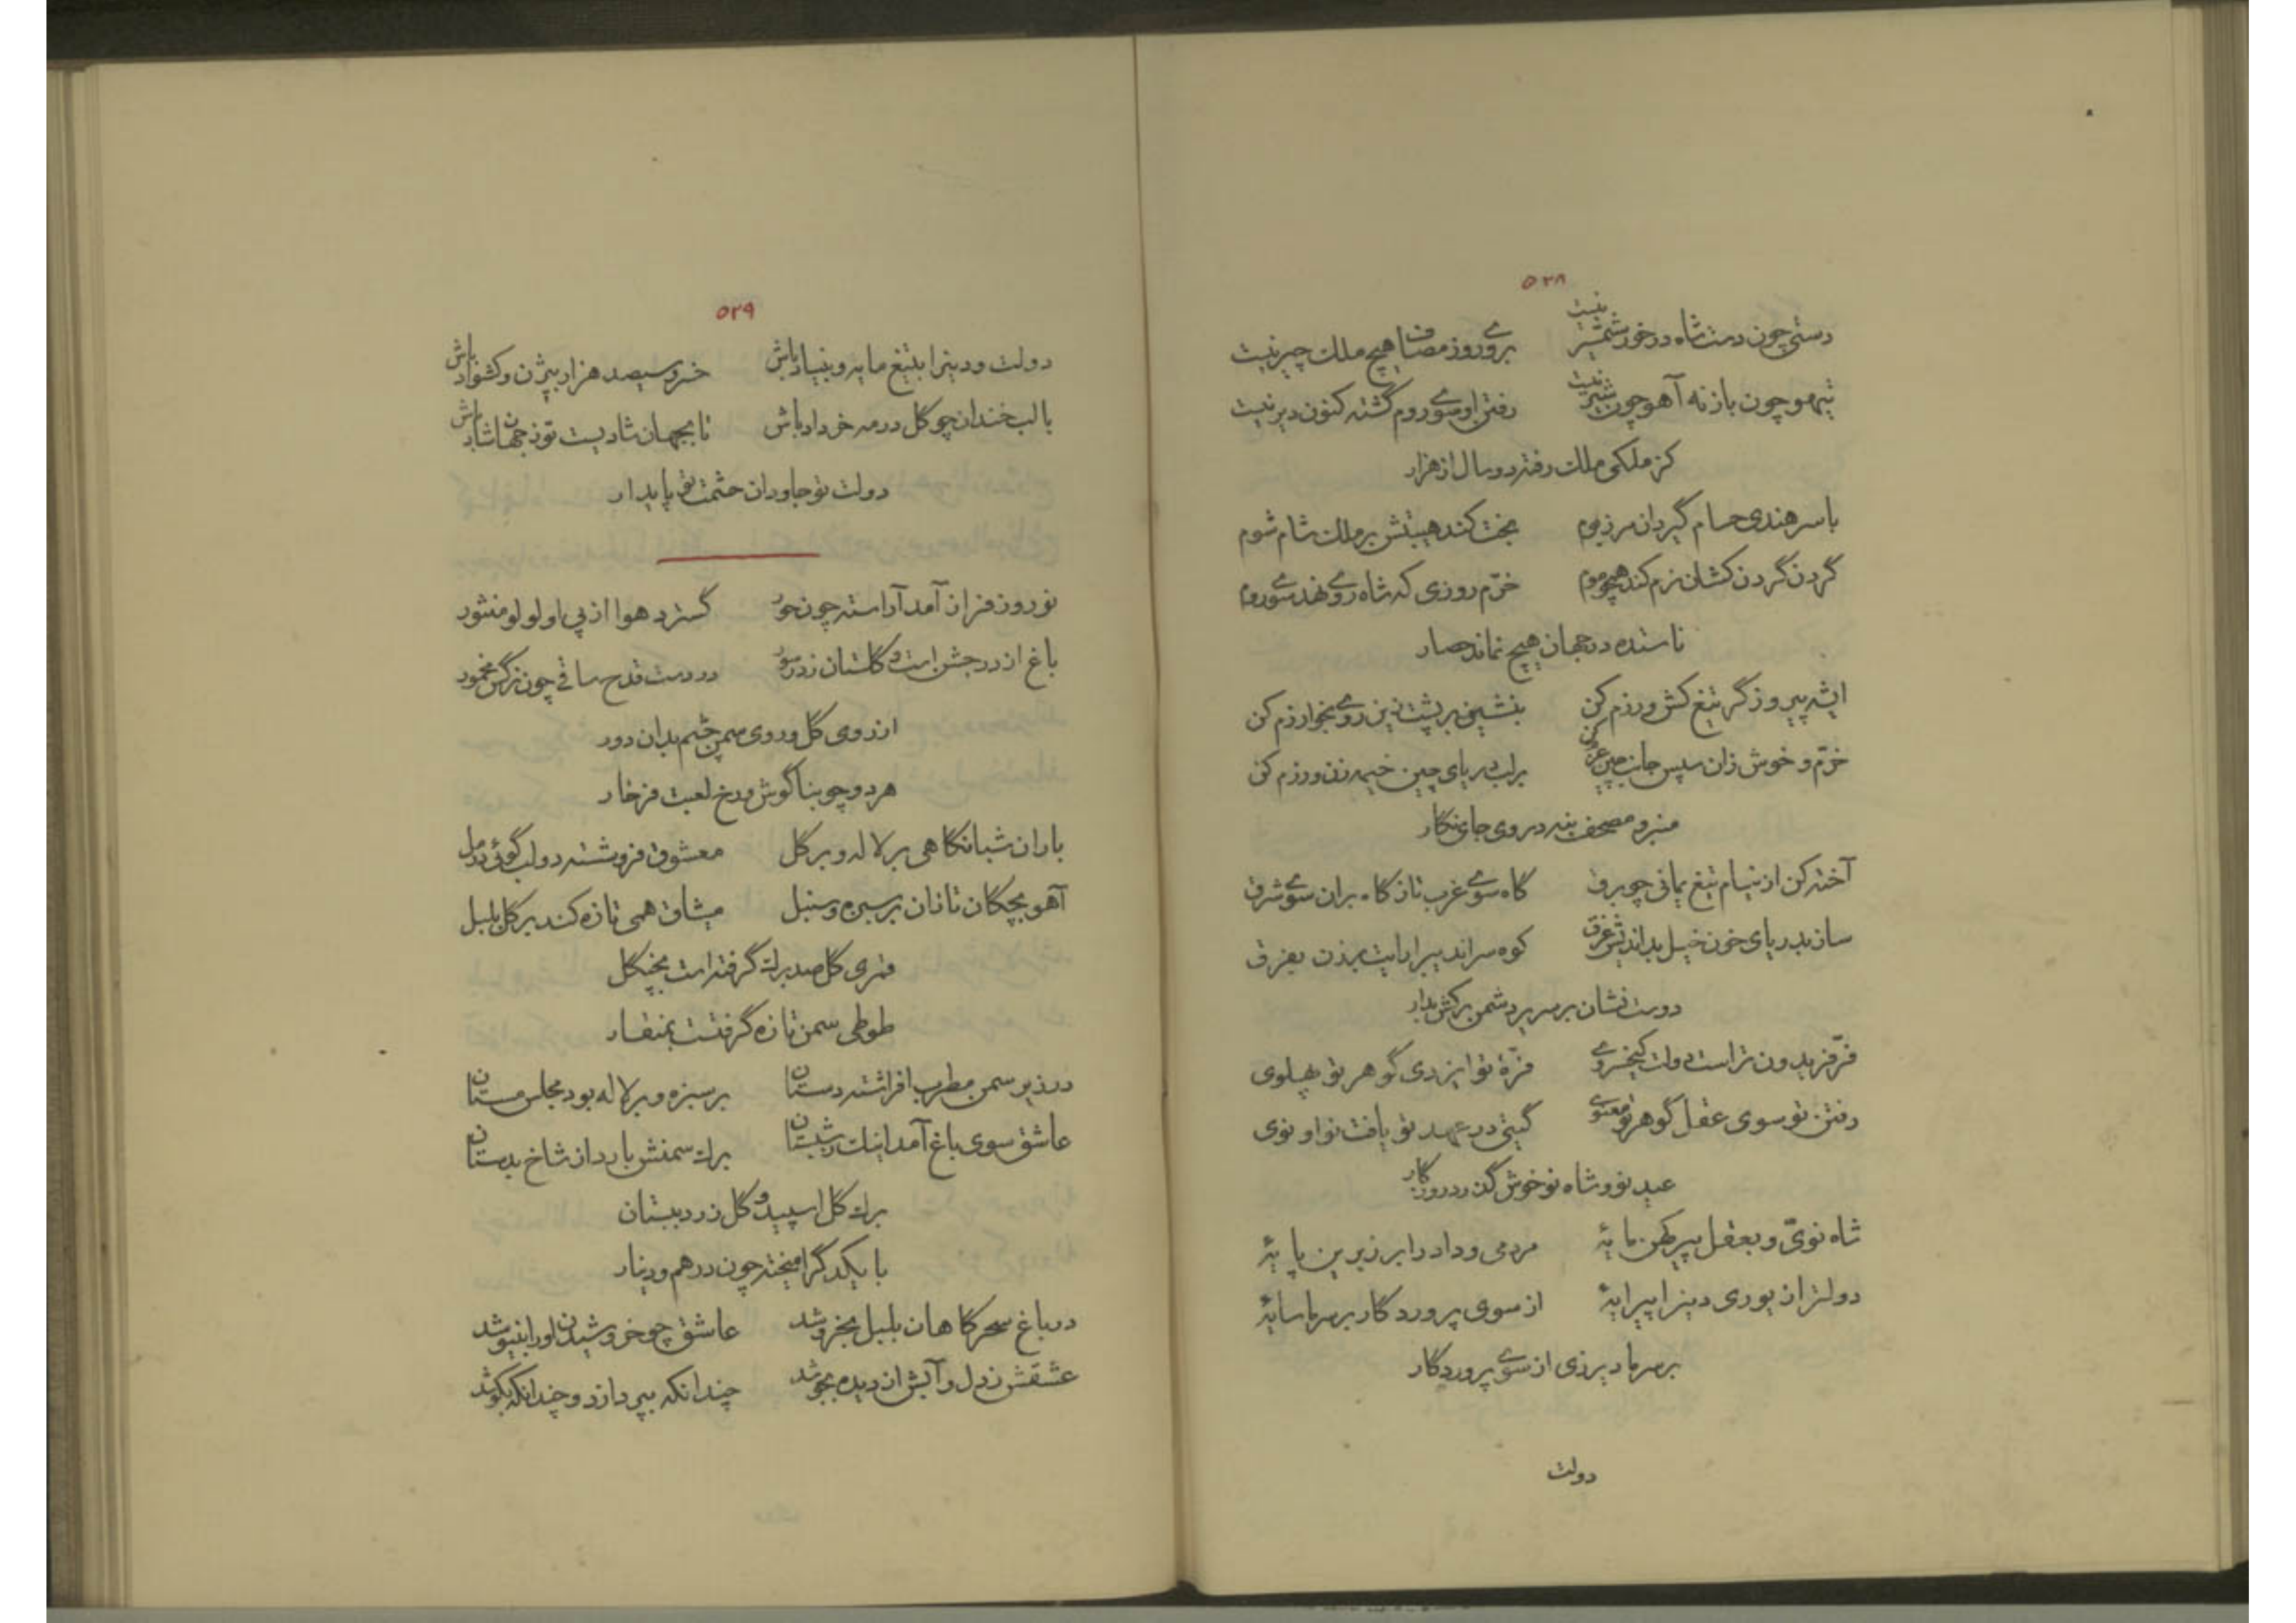 ۵۲۸
دستی چون دست شاه درخور شمشیر نیست بروی و روز مصاف هیچ ملک چیر نیست
تیهو چون باز نه آهو چون شیر نیست رفتن او سوی روم گشته کنون دیر نیست
کز ملکی ملک رفته دو سال از هزار
با سر هندی حسام گیر دان مرز بوم بخت کند هیبتش بر ملک شام شوم
گردن گردن کشان نرم کند همچو موم خرّم روزی که شاه روی نهد سوی روم
ناستده در جهان هیچ نماند حصار
ای شه پیروزگر تیغ کش و رزم کن بنشین بر پشت زین روی بخوارزم کن
خرّم و خوش زان سپس جانب چین عزم کن بر لب دریای چین خیمه زن و رزم کن
منبر و مصحف بنه در وی جای نگار
آخته کن از نیام تیغ یمانی چو برق گاه سوی غرب تاز گاه بران سوی شرق
ساز بدریای خون خیل بداندیش غرق کوه سراندیب را رایت بزدن بفرق
دوست نشان بر سریر دشمن برکش بدار
فرّ فریدون تراست دولت کیخسروی فرّهٔ تو ایزدی گوهر تو پهلوی
رفتن تو سوی عقل گوهر تو معنوی گیتی در عهد تو یافت نو او نوی
عید نو و شاه نو خوش گذرد روزگار
شاه نویّ و بعقل پیر کهن مایهٔ مردمی و داد را برزبرین پایهٔ
دولترا زیوری دینرا پیرایهٔ از سوی پروردگار بر سر ما سایهٔ
بر سر ما دیر زی از سوی پروردگار
دولت
۵۲۹
دولت و دینرا بتیغ مایه و بنیاد باش خسرو سیصد هزار بیژن و کشواد باش
با لب خندان چو گل در مه خرداد باش تا بجهان شادیست تو ز جهان شاد باش
دولت تو جاودان حشمت تو پایدار
نوروز فراز آمد آراسته چون حور گسترد هوا از پی او لولو منثور
باغ از در جشن است و گلستان ز در سور در دست قدح ساقی چون نرگس مخمور
از روی گل و روی سمن چشم بدان دور
هر دو چو بناگوش و رخ لعبت فرخار
باران شبانگاهی بر لاله و بر گل معشوق فروشسته دو لب گوئی در مل
آهو بچگان تازان بر سبزه و سنبل میثاق همی تازه کند بر گل بلبل
قمری گل صد برگ گرفته است بچنگل
طوطی سمن تازه گرفتست بمنقار
در زیر سمن مطرب افراشته دستان بر سبزه و بر لاله بود مجلس مستان
عاشق سوی باغ آمد اینک ز شبستان برگ سمنش بارد از شاخ بدستان
برگ گل اسپید و گل زرد ببستان
با یکدگر آمیخته چون درهم و دینار
در باغ سحرگاهان بلبل بخروشد عاشق چو خروشیدن او را بنیوشد
عشقش ز دل و آبش از دیده بجوشد چندانکه بپردازد و چندانکه بکوشد